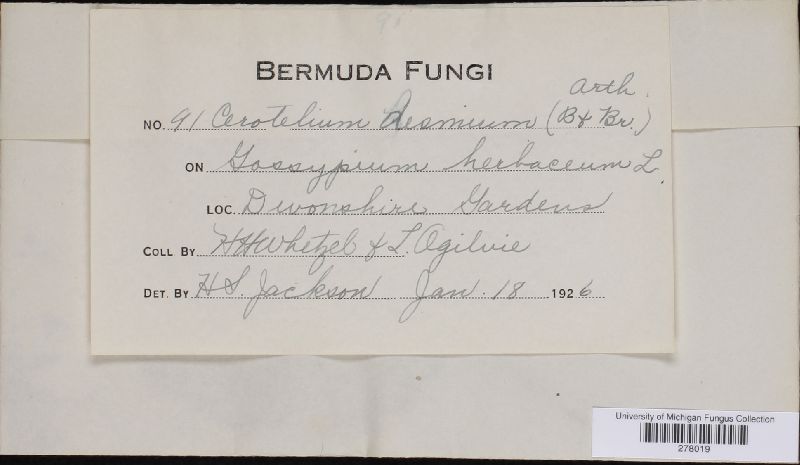 91
BERMUDA FUNGI
Arth.
NO. 91 Cerotelium desmium (B & Br.)
ON Gossypium herbaceum L.
LOC. Devonshire Gardens
COLL BY HHWhetzel & L. Ogilvie
DET. BY H S. Jackson Jan. 18 1926
University of Michigan Fungus Collection
278019